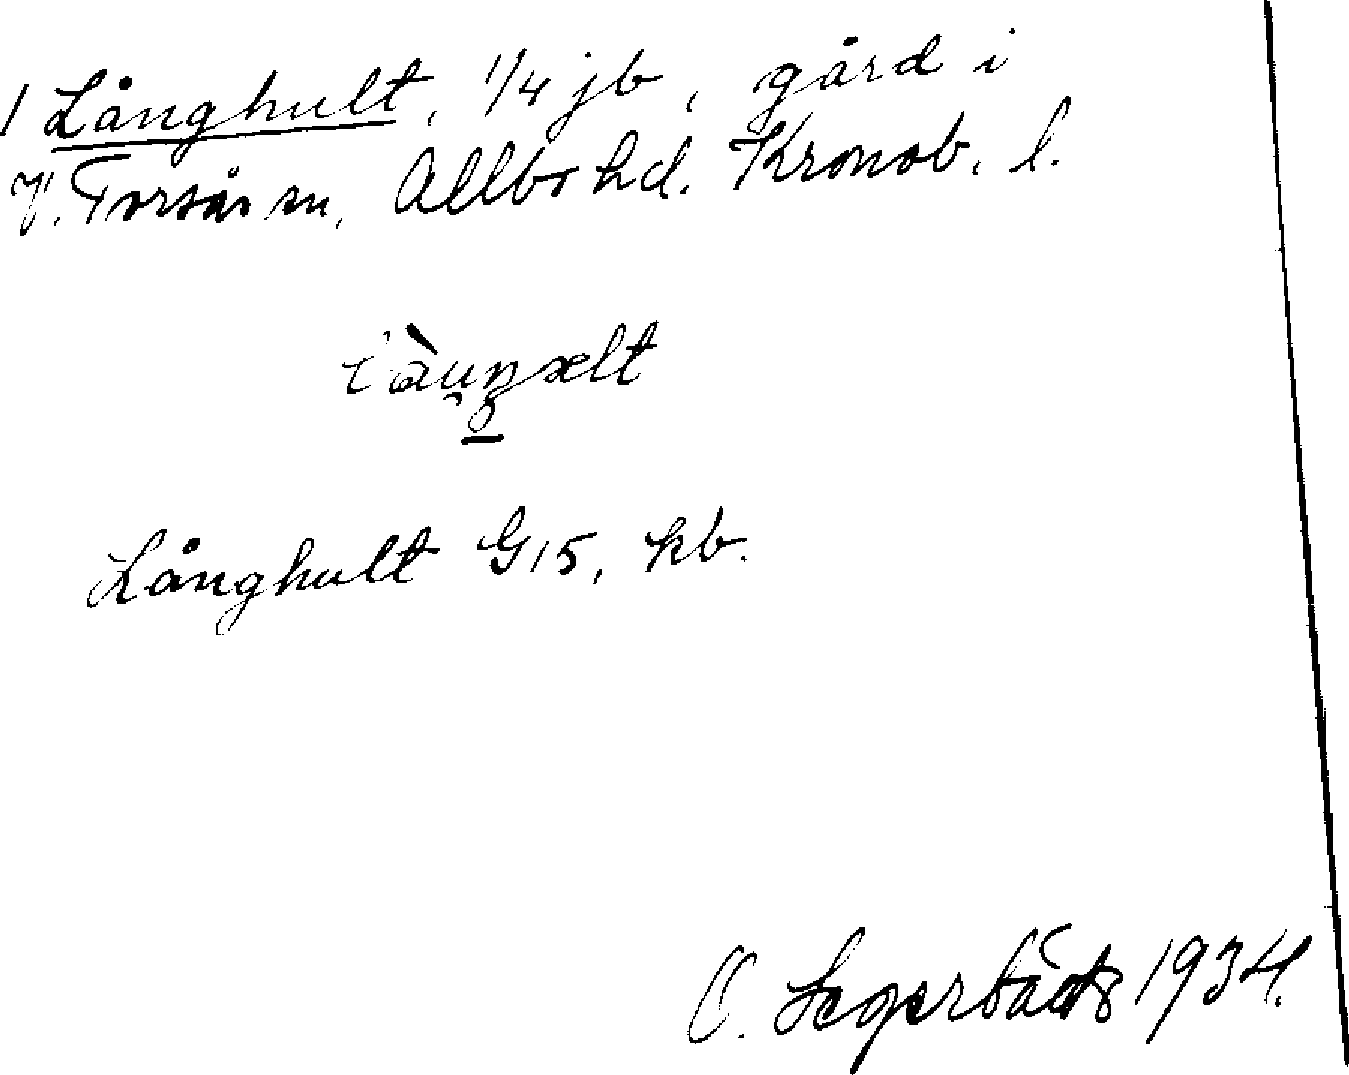 1 Långhult, 1/4 jb, gård i
V. Torsås sn, Allbo hd. Kronob. l.
Långhult G15, kb.
O. 1934.